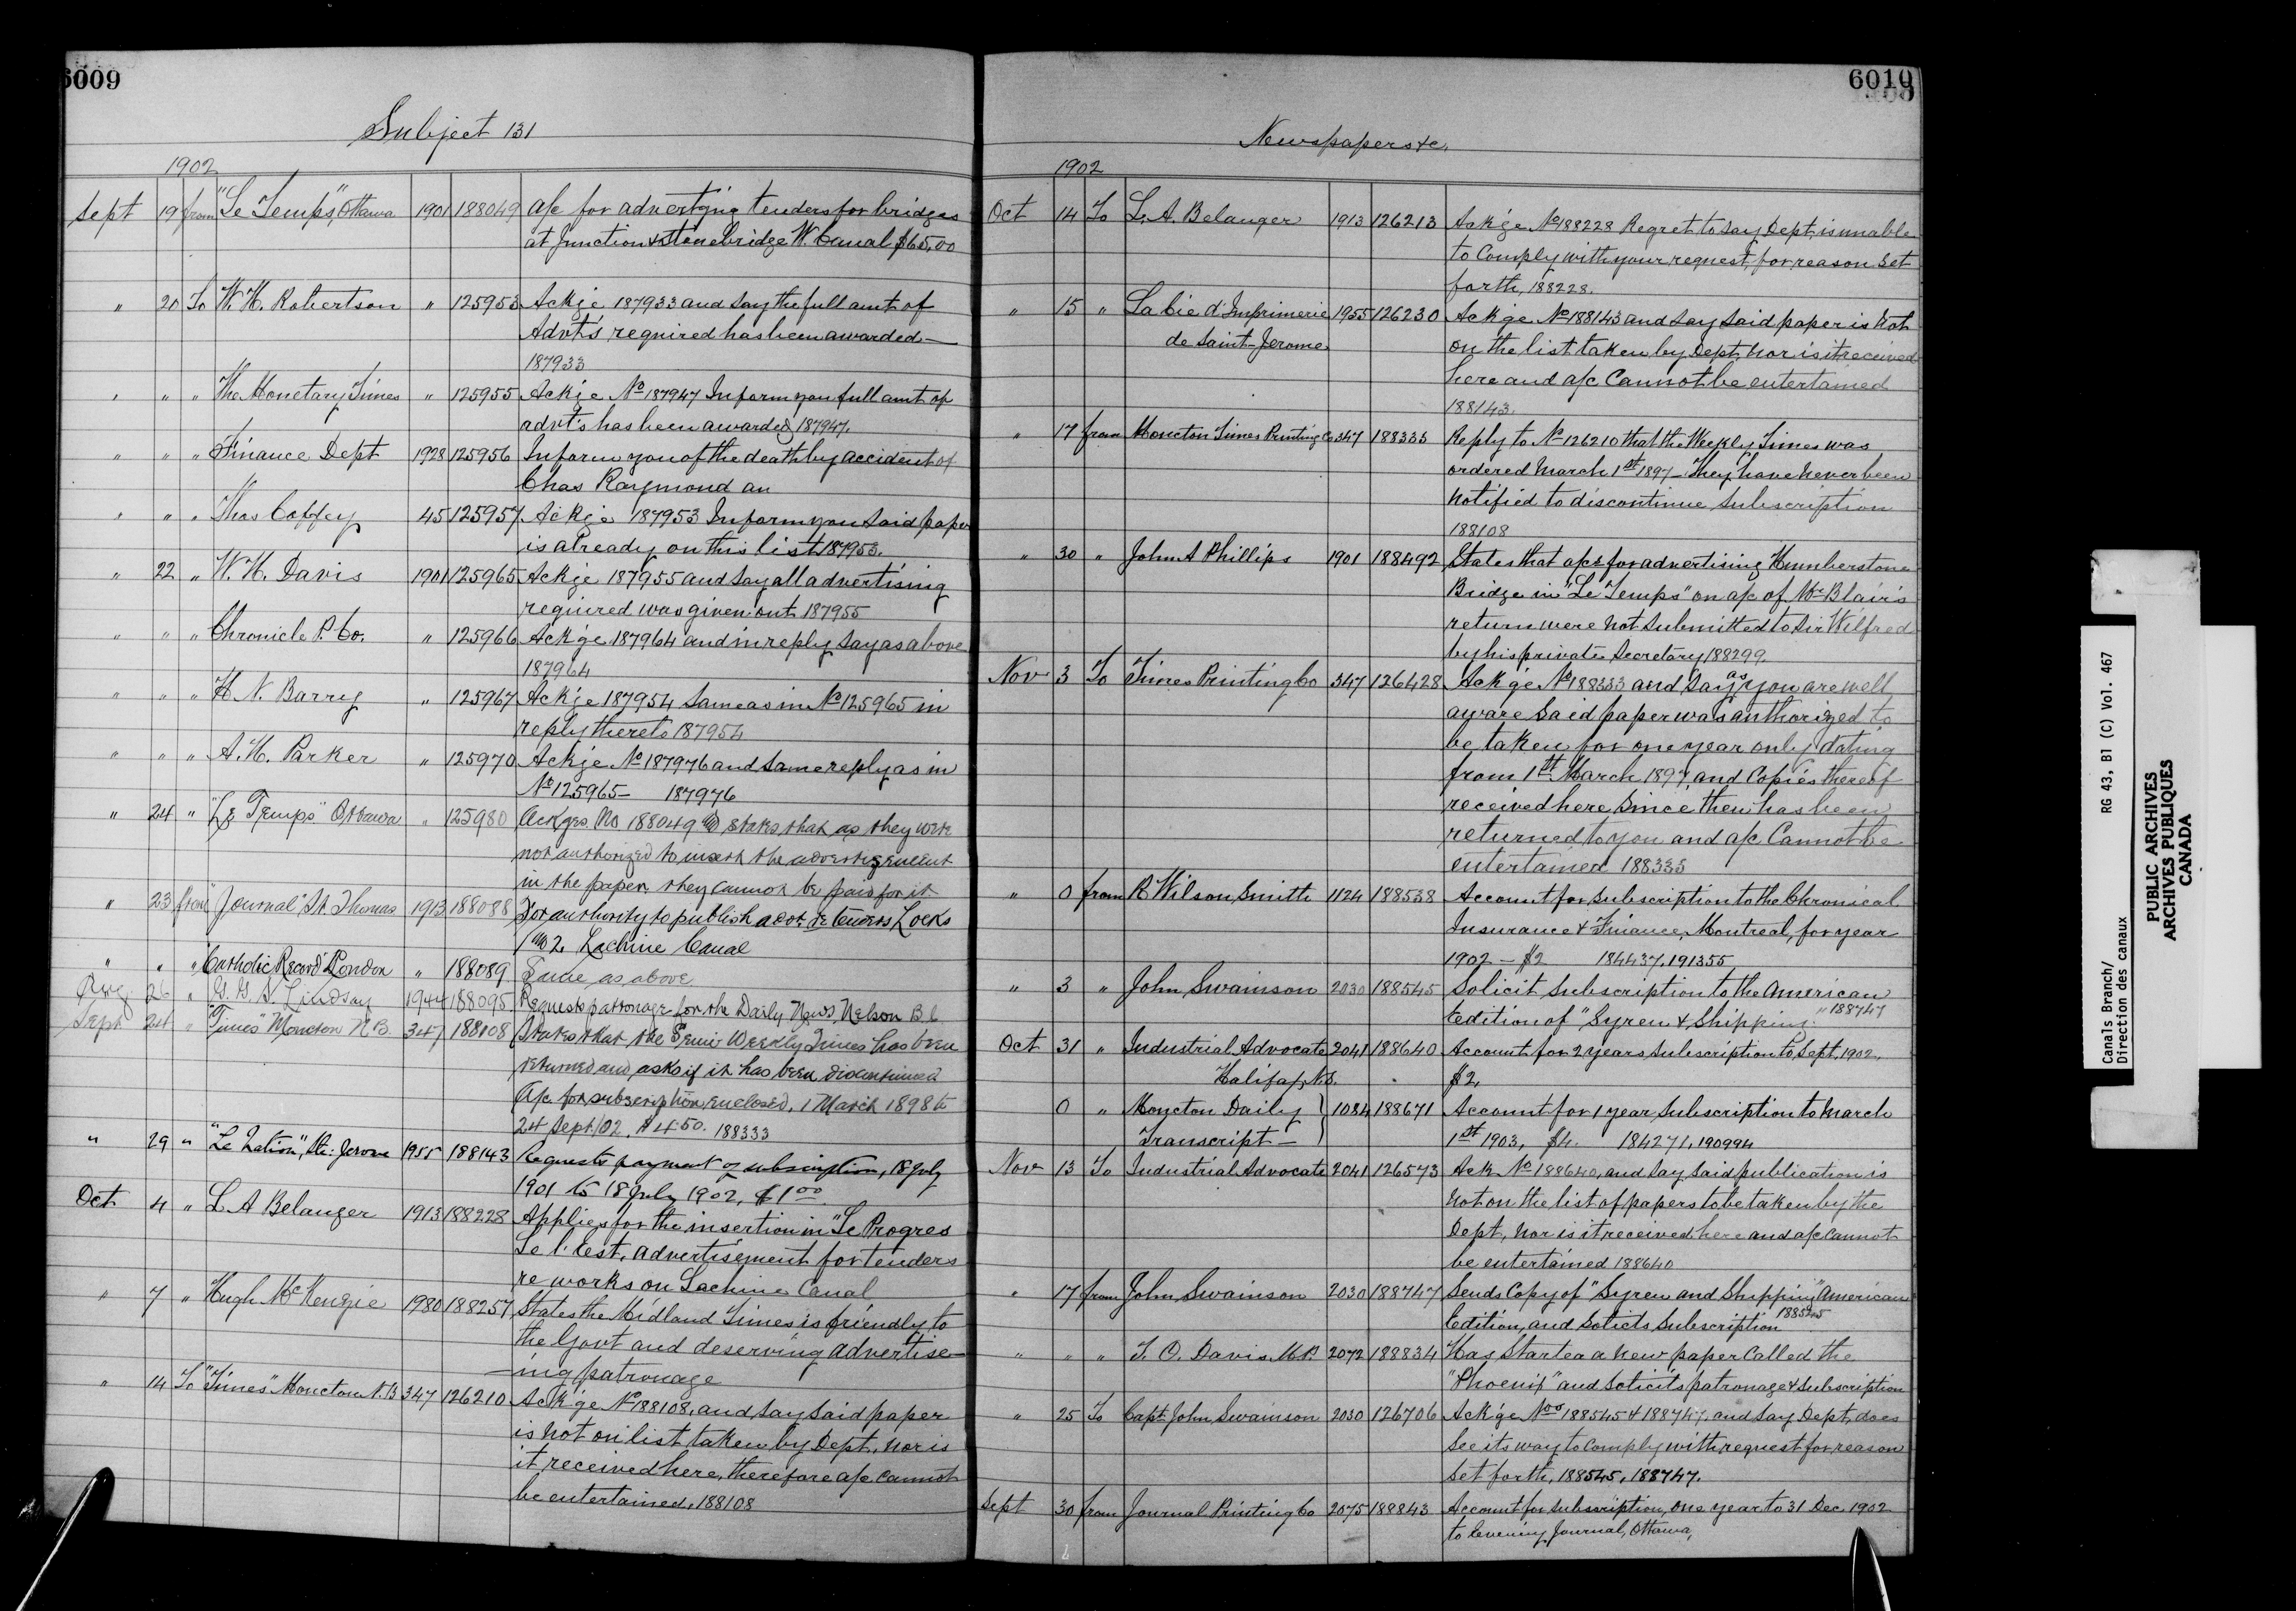 6009
Subject 131
1902
Sept 19 from "Le Temps", Ottawa 1901 188049 a/c for advertging tenders for bridges
at Junction & Stonebridge W. Canal $65.00
" 20 To W. H. Robertson " 125953 Ackge 187933 and say the full amt of
Advt's required has been awarded —
187933
" " " The Monetary Times " 125955 Ackge No 187947 Inform you full amt of
advt's has been awarded 187947.
" " " Finance Dept 1928 125956 Inform you of the death by accident of
Chas Raymond an
" " " Thos Coffey 45 125957 Ackge 187953 Inform you said paper
is already on this list 187953.
" 22 " W. H. Davis 1901 125965 Ackge 187955 and say all advertising
required was given out 187955
" " " Chronicle P. Co. " 125966 Ackge 187964 and in reply say as above
187964
" " " H. N. Barry " 125967 Ackge 187954 same as in No 125965 in
reply thereto 187954
" " " A. H. Parker " 125970 Ackge No 187976 and same reply as in
No 125965 — 187976
" 24 " "Le Temps" Ottawa " 125980 Ackges No 188049 & states that as they were
not authorized to insert the advertizement
in the paper they cannot be paid for it
" 23 from "Journal" St. Thomas 1913 188088 For authority to publish advt. re tenders Locks
No 2 Lachine Canal
" " " "Catholic Record" London " 188089 Same as above
Aug 26 " G. G. S. Lindsay 1944 188095 Requests patronage for the Daily News, Nelson B C
Sept 24 " "Times" Moncton N B. 347 188108 States that the Semi Weekly Times has been
returned and asks if it has been discontinued
A/c for subscription enclosed, 1 March 1898 to
24 Sept/02. $4.50. 188333
" 29 " "La Nation", St. Jerome 1955 188143 Requests payment of subscription, 18 July
1901 to 18 July 1902, $1.00
Oct 4 " L. A Belanger 1913 188228 Applies for the insertion in "Le Progres
de l'Est, advertisement for tenders
re works on Lachine Canal
" 7 " Hugh McKenzie 1980 188257 States the Midland Times is friendly to
the Govt and deserving advertise-
ing patronage
" 14 To "Times" Moncton N.B 347 126210 Ackge No 188108, and say said paper
is not on list taken by Dept, nor is
it received here, therefore a/c cannot
be entertained. 188108
6010
Newspapers &c.
1902
Oct 14 To L. A. Belanger 1913 126213 Ackge No 188228 Regret to say Dept, is unable
to comply with your request, for reason set
forth, 188228.
" 15 " La Cie d'Imprimerie 1955 126230 Ackge No 188143 and say said paper is not
de Saint-Jerome on the list taken by Dept, nor is it received
here and a/c cannot be entertained
188143.
" 17 from Moncton Times Printing Co 347 188335 Reply to No 126210 that the Weekly Times was
ordered March 1st 1897 — They have never been
notified to discontinue subscription
188108
" 30 " John A Phillips 1901 188492 States that a/cs for advertising Humberstone
Bridge in "Le Temps" on a/c of Mr Blair's
return were not submitted to Sir Wilfred
by his private Secretary 188299.
Nov 3 To Times Printing Co 347 126428 Ackge No 188333 and say as you are well
aware said paper was authorized to
be taken for one year only dating
from 1st March 1897, and copies thereof
received here since then has been
returned to you and a/c cannot be
entertained 188335
" 0 from R Wilson Smith 1124 188538 Account for subscription to the Chronical
Insurance & Finance, Montreal, for year
1902 — $2 184437, 191355
" 3 " John Swainson 2030 188545 Solicit subscription to the American
Edition of "Syren & Shipping." 188747
Oct 31 " Industrial Advocate 2041 188640 Account for 2 years subscription to Sept. 1902.
Halifax, N.S. $2.
0 " Moncton Daily 1084 188671 Account for 1 year subscription to March
Transcript — 1st 1903, $4. 184271, 190994
Nov 13 To Industrial Advocate 2041 126573 Ack No 188640, and say said publication is
not on the list of papers to be taken by the
Dept, nor is it received here and a/c cannot
be entertained 188640
" 17 from John Swainson 2030 188747 Sends copy of "Syren and Shipping" American
Edition, and Solicits subscription 188545
" " " T. O. Davis. M.P. 2072 188834 Has started a new paper called the
"Phoenix" and solicits patronage & subscription
" 25 To Capt. John Swainson 2030 126706 Ackge Nos 188545 & 188747, and say Dept, does
see its way to comply with request for reason
set forth, 188545, 188747.
Sept 30 from Journal Printing Co 2075 188843 Account for subscription, one year to 31 Dec. 1902
to Evening Journal, Ottawa,
Canals Branch/ RG 43, B1 (C) Vol. 467
Direction des canaux
PUBLIC ARCHIVES
ARCHIVES PUBLIQUES
CANADA